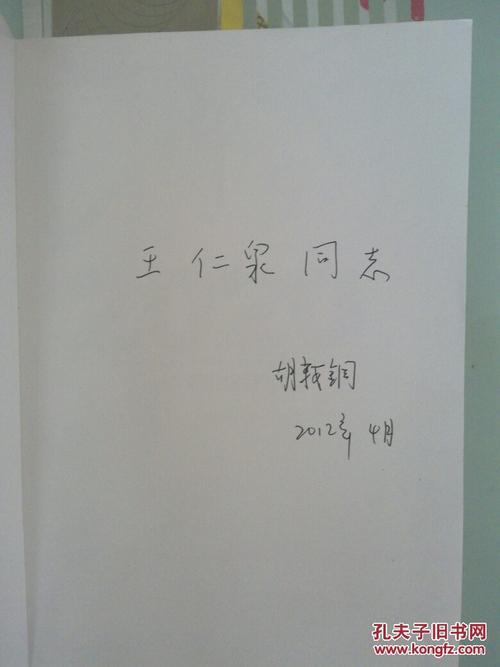 王仁泉同志
胡轶钢
2012年4月
孔夫子旧书网
www.kongfz.com